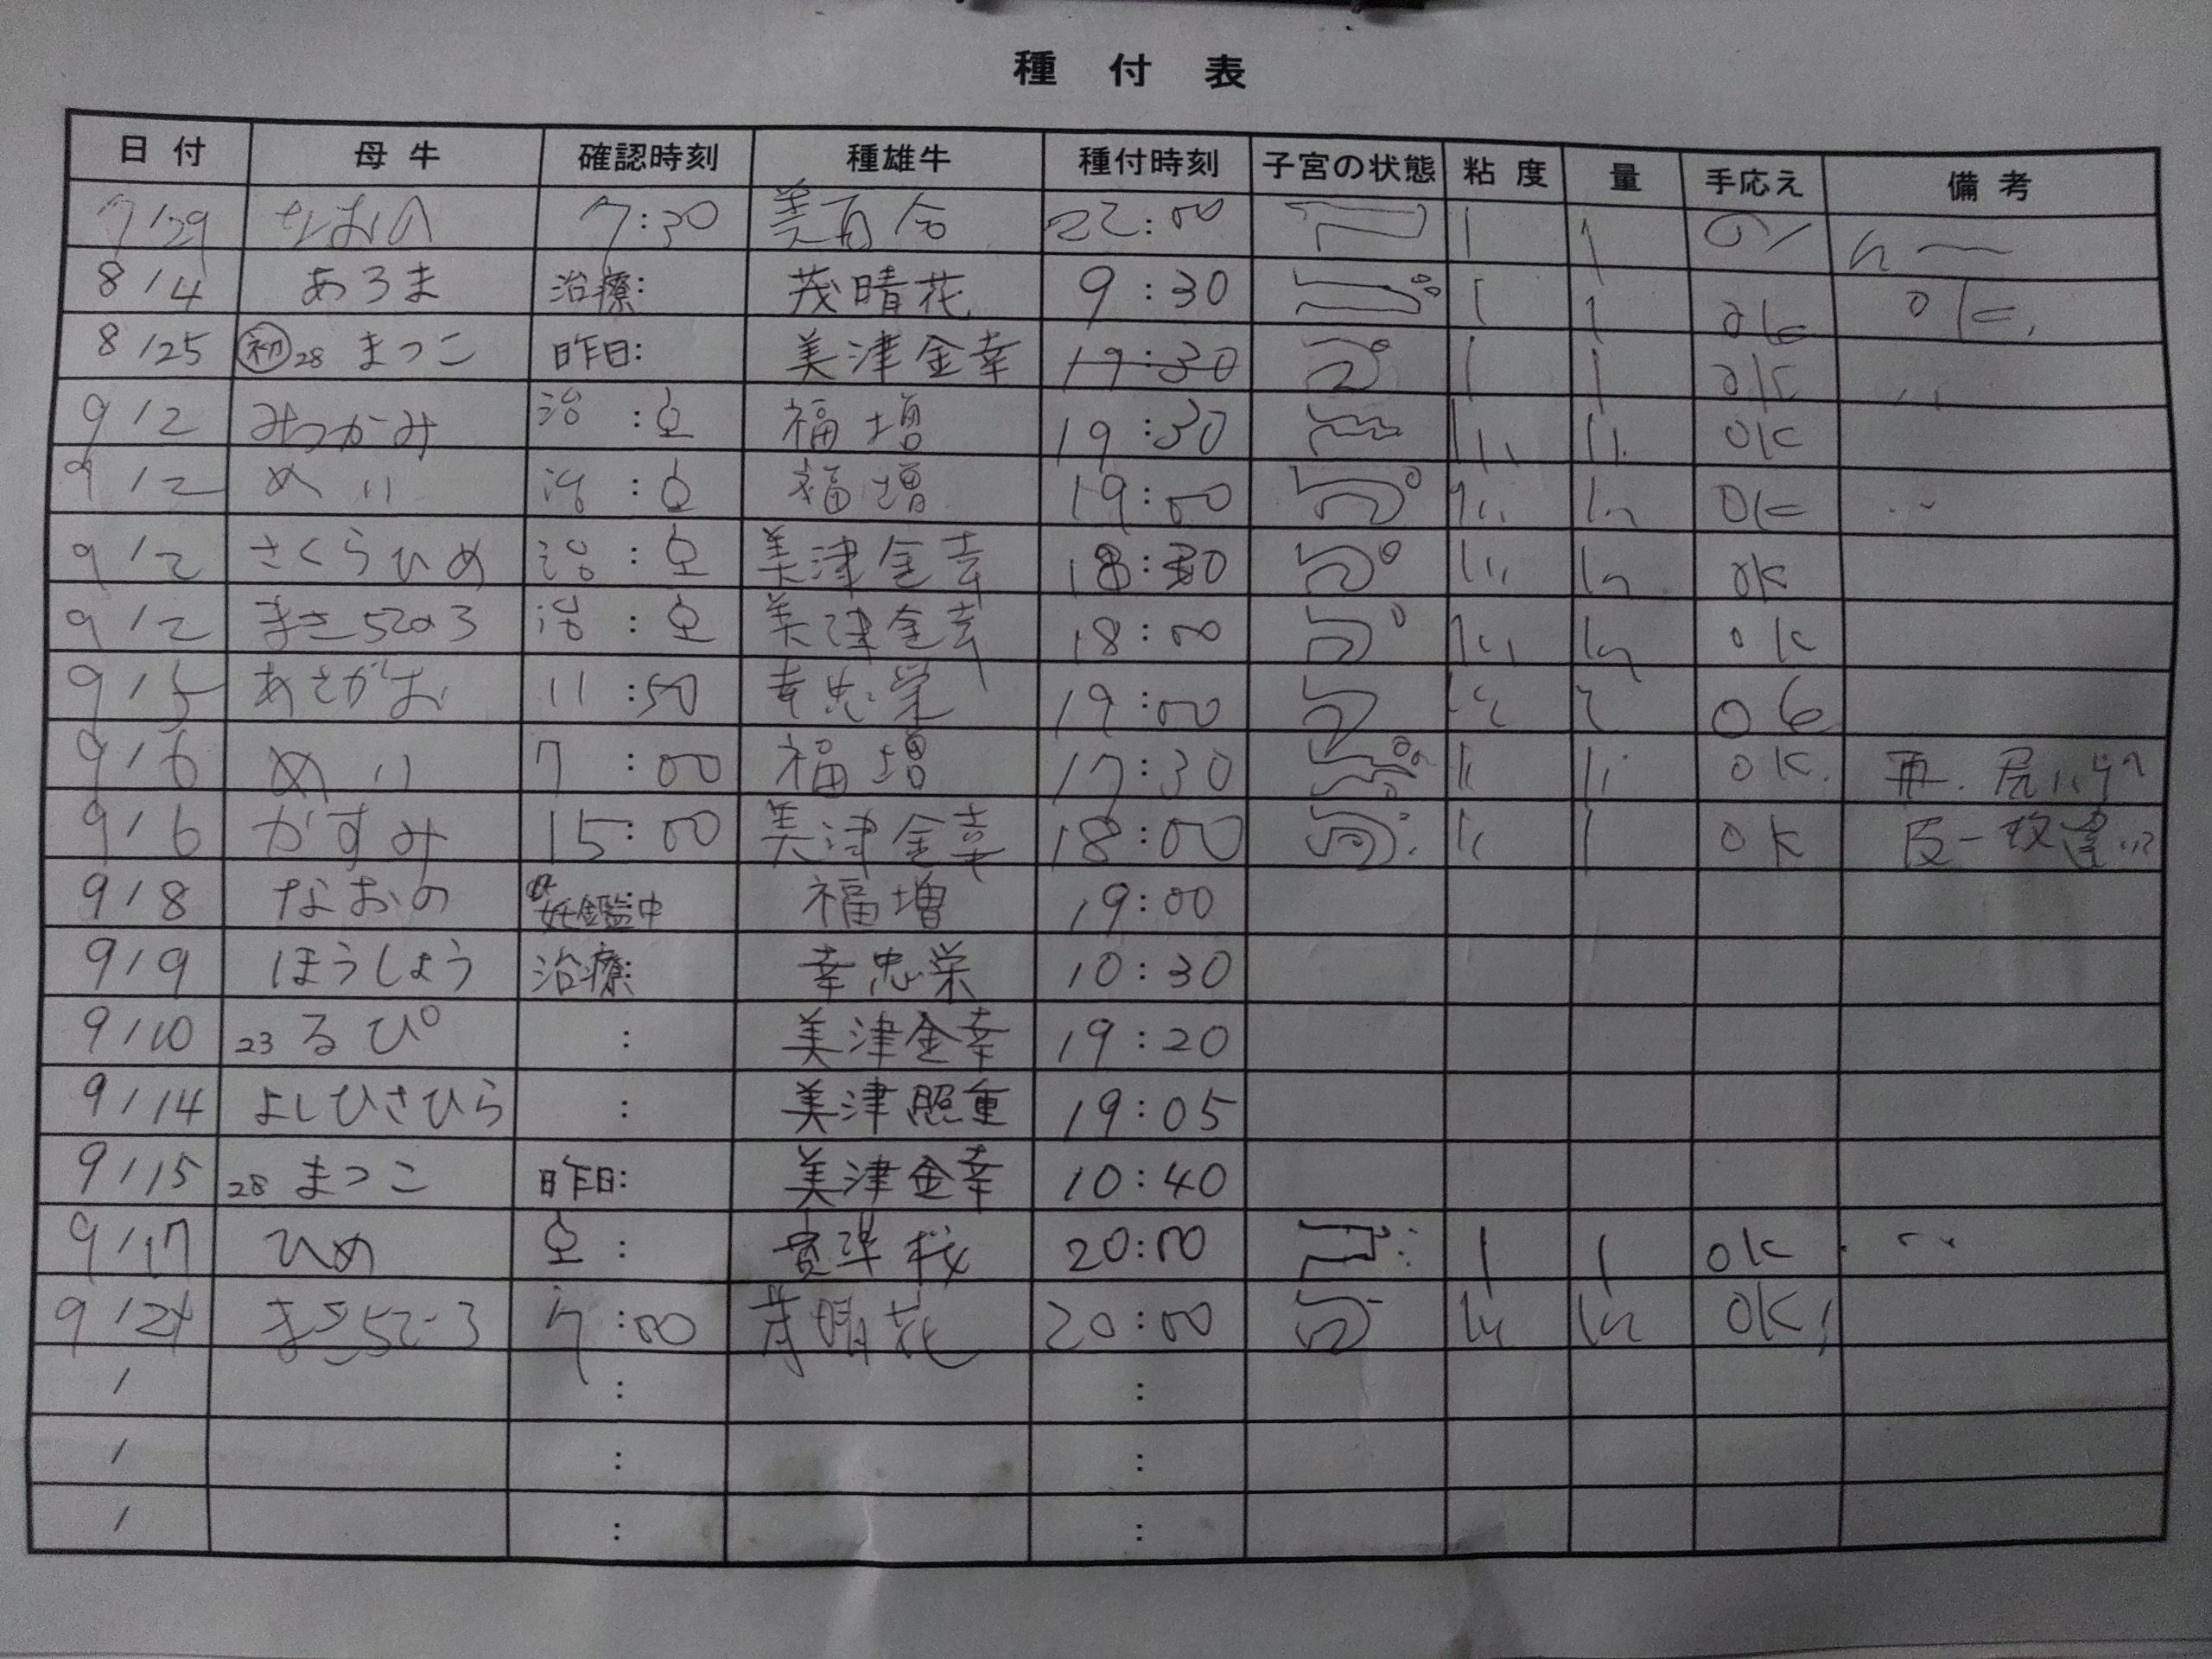 種付表
日付 母牛 確認時刻 種雄牛 種付時刻 子宮の状態 粘度 量 手応え 備考
7/29 なおの 7:30 美百合 22:00
8/4 あろま 治療: 茂晴花 9:30 ok ok.
8/25 初 28 まつこ 昨日: 美津金幸 19:30 ok
9/2 みつかみ 治: 福増 19:30 OK
9/2 めい 治: 福増 19:00 OK
9/2 さくらひめ 治: 美津金幸 18:30 OK
9/2 治: 美津金幸 18:00 OK
9/5 あさがお 11:50 幸忠栄 19:00
9/6 めい 7:00 福増 17:30 OK.
9/6 かすみ 15:00 美津金幸 18:00 OK
9/8 なおの 妊鑑中 福増 19:00
9/9 ほうしょう 治療: 幸忠栄 10:30
9/10 23 るぴ : 美津金幸 19:20
9/14 よしひさひら : 美津照重 19:05
9/15 28 まつこ 昨日: 美津金幸 10:40
9/17 ひめ : 20:00 OK
9/21 7:00 茂晴花 20:00 OK
/ : :
/ : :
/ : :